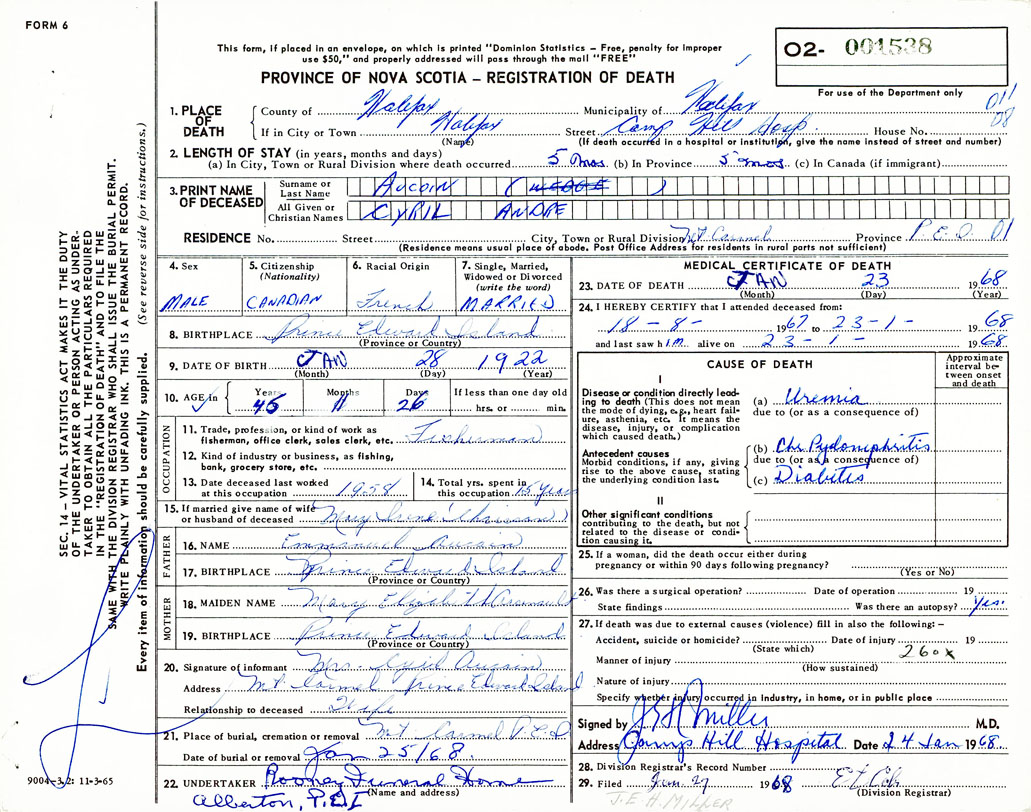 FORM 6
This form, if placed in an envelope, on which is printed "Dominion Statistics – Free, penalty for improper
use $50," and properly addressed will pass through the mail "FREE"
PROVINCE OF NOVA SCOTIA – REGISTRATION OF DEATH
O2- 001538
For use of the Department only
011
08
1. PLACE OF DEATH
County of Halifax Municipality of Halifax
If in City or Town Halifax Street Camp Hill Hosp. House No.
(Name) (If death occurred in a hospital or institution, give the name instead of street and number)
2. LENGTH OF STAY (in years, months and days)
(a) In City, Town or Rural Division where death occurred 5 mos. (b) In Province 5 mos (c) In Canada (if immigrant)
3. PRINT NAME OF DECEASED
Surname or Last Name AUCOIN ( )
All Given or Christian Names CYRIL ANDRE
RESIDENCE No. Street City, Town or Rural Division Mt Carmel Province P.E.I. 01
(Residence means usual place of abode. Post Office Address for residents in rural parts not sufficient)
4. Sex MALE
5. Citizenship (Nationality) CANADIAN
6. Racial Origin French
7. Single, Married, Widowed or Divorced (write the word) MARRIED
8. BIRTHPLACE Prince Edward Island
(Province or Country)
9. DATE OF BIRTH JAN 28 1922
(Month) (Day) (Year)
10. AGE in Years Months Days If less than one day old
45 11 26 hrs. or min.
OCCUPATION
11. Trade, profession, or kind of work as fisherman, office clerk, sales clerk, etc. Fisherman
12. Kind of industry or business, as fishing, bank, grocery store, etc.
13. Date deceased last worked at this occupation 1958
14. Total yrs. spent in this occupation 15 years
15. If married give name of wife or husband of deceased Mary Irene (Chaisson)
FATHER
16. NAME Emmanuel Aucoin
17. BIRTHPLACE Prince Edward Island
(Province or Country)
MOTHER
18. MAIDEN NAME Mary Elizabeth Arsenault
19. BIRTHPLACE Prince Edward Island
(Province or Country)
20. Signature of informant Mrs. Cyril Aucoin
Address Mt Carmel Prince Edward Island
Relationship to deceased Wife
21. Place of burial, cremation or removal Mt Carmel P.E.I
Date of burial or removal Jan 25/68
22. UNDERTAKER Rooney Funeral Home
(Name and address)
Alberton, P.E.I
9004-3.2: 11-3-65
MEDICAL CERTIFICATE OF DEATH
23. DATE OF DEATH JAN 23 1968
(Month) (Day) (Year)
24. I HEREBY CERTIFY that I attended deceased from:
18-8- 1967 to 23-1- 1968
and last saw him alive on 23-1- 1968
CAUSE OF DEATH
Approximate interval between onset and death
I
Disease or condition directly leading to death (This does not mean the mode of dying, e.g., heart failure, asthenia, etc. It means the disease, injury, or complication which caused death.)
(a) Uremia
due to (or as a consequence of)
Antecedent causes
Morbid conditions, if any, giving rise to the above cause, stating the underlying condition last.
(b) Chr Pyelonephritis
due to (or as a consequence of)
(c) Diabetis
II
Other significant conditions
contributing to the death, but not related to the disease or condition causing it.
25. If a woman, did the death occur either during
pregnancy or within 90 days following pregnancy?
(Yes or No)
26. Was there a surgical operation? Date of operation 19
State findings Was there an autopsy? Yes.
27. If death was due to external causes (violence) fill in also the following: –
Accident, suicide or homicide? Date of injury 19
(State which) 260x
Manner of injury
(How sustained)
Nature of injury
Specify whether injury occurred in industry, in home, or in public place
Signed by J.E.H. Miller M.D.
Address Camp Hill Hospital Date 24 Jan 1968.
28. Division Registrar's Record Number
29. Filed Jan. 29 1968
(Division Registrar)
J.E.H. MILLER
SEC. 14 – VITAL STATISTICS ACT MAKES IT THE DUTY
OF THE UNDERTAKER OR PERSON ACTING AS UNDER-
TAKER TO OBTAIN ALL THE PARTICULARS REQUIRED
IN THE "REGISTRATION OF DEATH" AND TO FILE THE
SAME WITH THE DIVISION REGISTRAR WHO SHALL ISSUE THE BURIAL PERMIT.
WRITE PLAINLY WITH UNFADING INK. THIS IS A PERMANENT RECORD.
Every item of information should be carefully supplied. (See reverse side for instructions.)